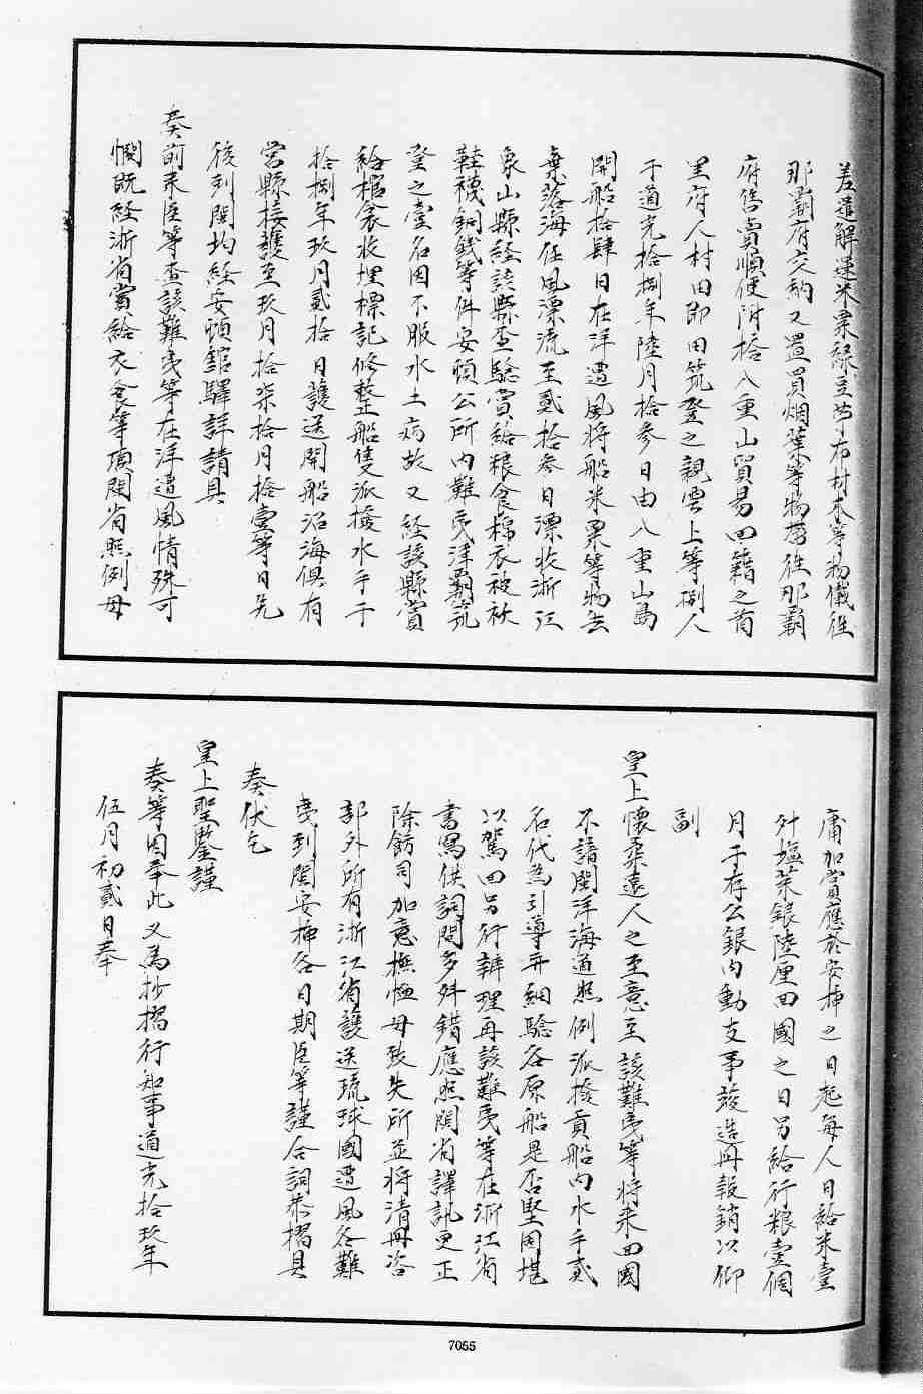 差遣解運米粟綠豆苧布材木等物儎往
那霸府交納又置買烟葉等物帶往那霸
府售賣順便附搭八重山貿易回籍之首
里府人村田即田筑登之親雲上等捌人
于道光拾捌年陸月拾參日由八重山島
開船拾肆日在洋遭風將船米粟等物丟
棄落海任風漂流至貳拾參日漂收浙江
象山縣經該縣查驗賞給粮食棉衣被袄
鞋襪銅錢等件安頓公所內難民津霸筑
登之壹名因不服水土病故又經該縣賞
給棺衾收埋標記修整船隻派撥水手于
拾捌年玖月貳拾日護送開船沿海俱有
營縣接護至玖月拾柒拾月拾壹等日先
後到閩均經安頓館驛詳請具
奏前來臣等查該難夷等在洋遭風情殊可
憫旣經浙省賞給衣食等項閩省照例毋
庸加賞應於安插之日起每人日給米壹
升塩菜銀陸厘回國之日另給行粮壹個
月于存公銀內動支事竣造冊報銷以仰
副
皇上懷柔遠人之至意至該難夷等將來回國
不諳閩洋海道照例派撥貢船內水手貳
名代為引導并細驗各原船是否堅固堪
以駕回另行辦理再該難夷等在浙江省
書寫供詞間多舛錯應照閩省譯訊更正
除飭司加意撫恤毋致失所並將清冊咨
部外所有浙江省護送琉球國遭風各難
夷到閩安插各日期臣等謹合詞恭摺具
奏伏乞
皇上聖鑒謹
奏等因奉此又為抄摺行知事道光拾玖年
伍月初貳日奉
7055